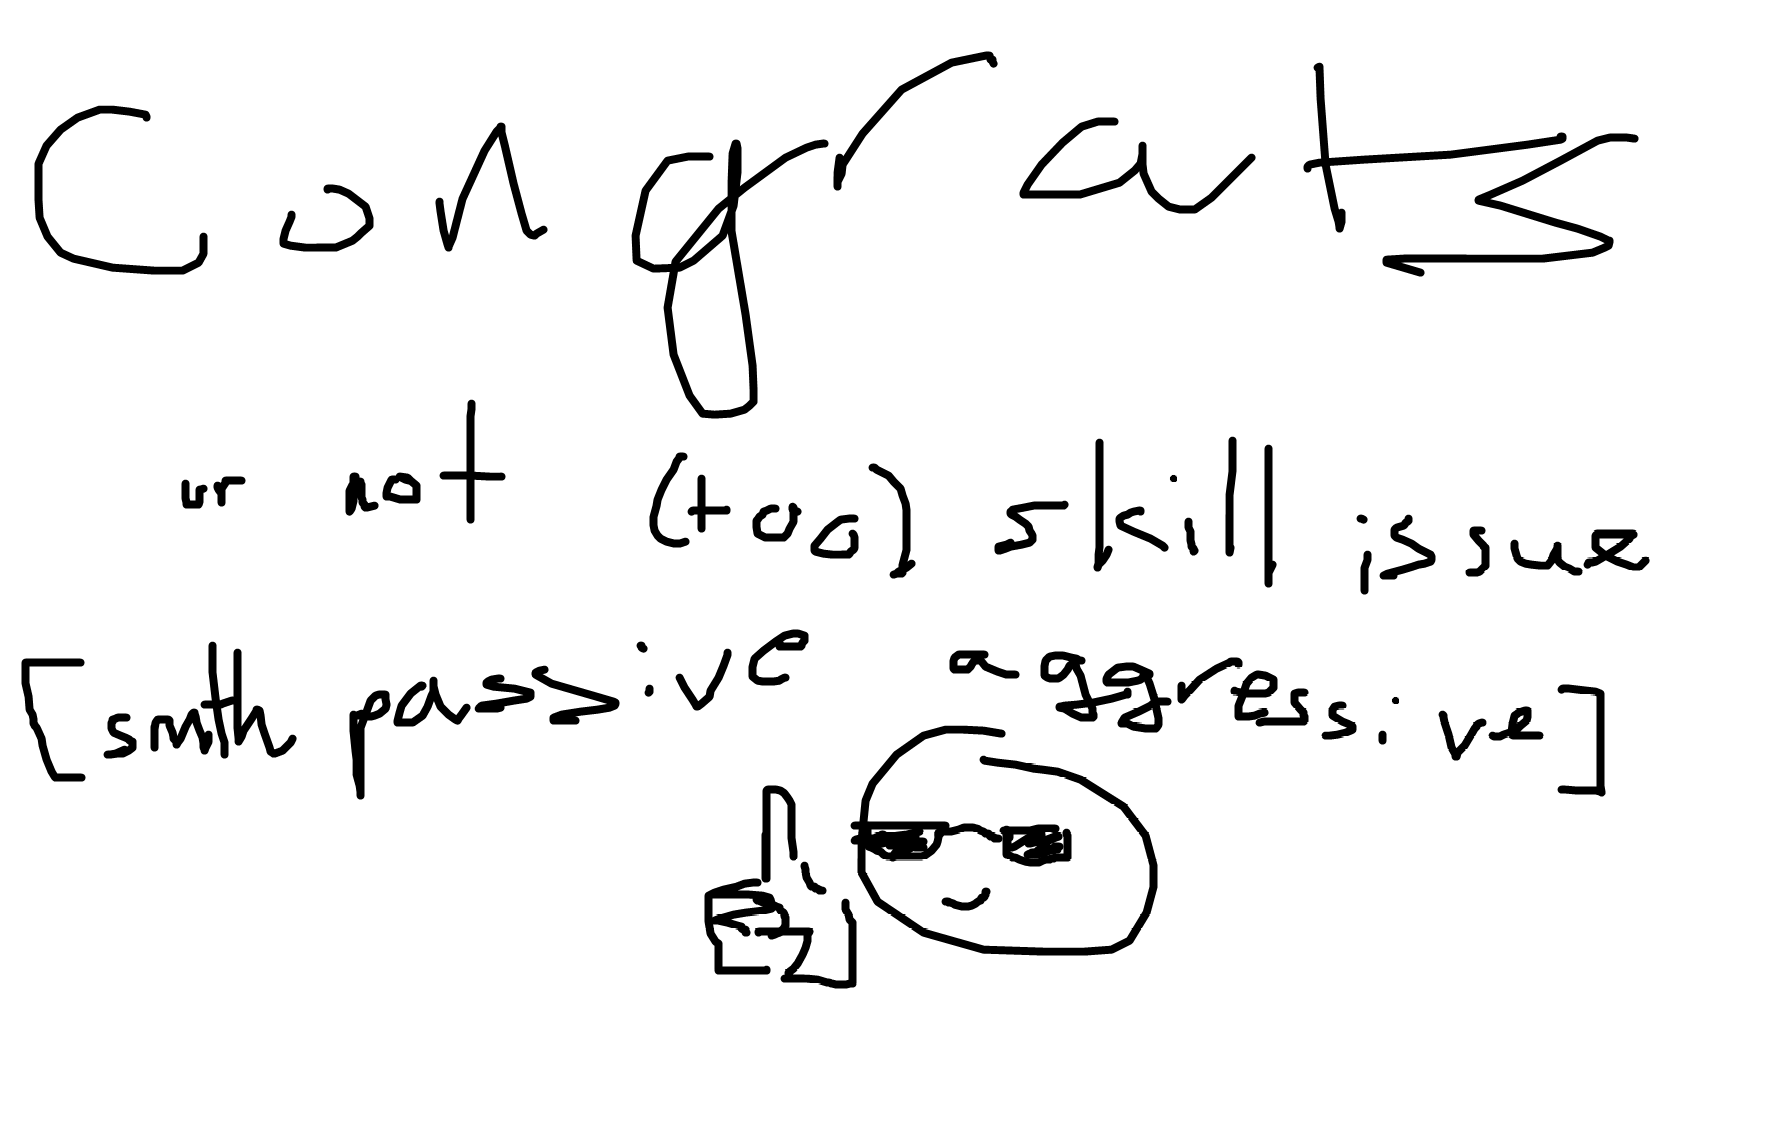 Congrats
ur not (too) skill issue
[smth passive aggressive]